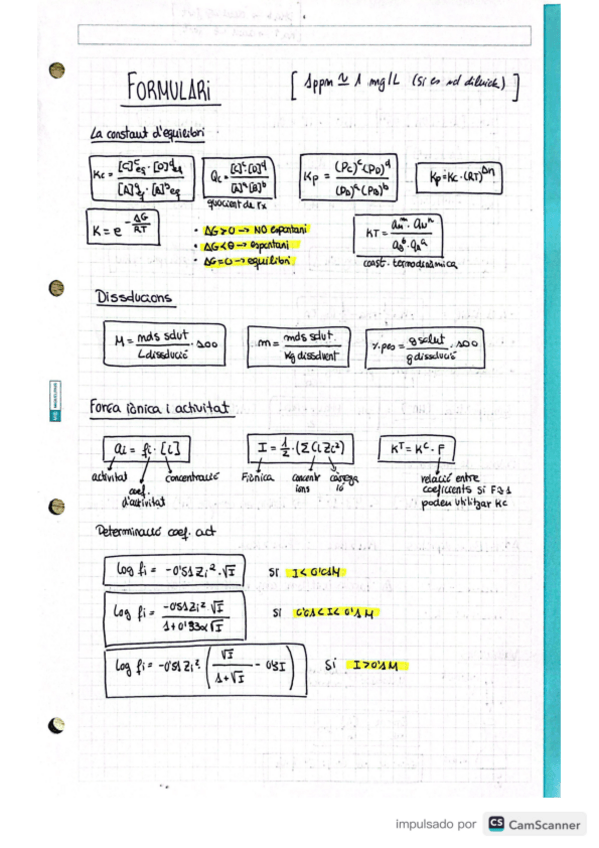 FORMULARI [ 1ppm ≃ 1 mg/L (si es sol diluida) ]
La constant d'equilibri
Kc = [C]^c eq · [D]^d eq / [A]^a eq · [B]^b eq
Qc = [C]^c·[D]^d / [A]^a·[B]^b
Kp = (Pc)^c·(PD)^d / (PA)^a·(PB)^b
Kp = Kc·(RT)^Δn
quocient de rx
K = e^-ΔG/RT
· ΔG>0 → NO espontani
· ΔG<0 → espontani
· ΔG=0 → equilibri
const. termodinàmica
Dissolucions
M = mols solut / L dissolució · 100
m = mols solut / Kg dissolvent
%pes = g solut / g dissolució · 100
Força iònica i activitat
ai = fi · [i]
I = 1/2 · (Σ Ci Zi²)
K^T = K^C · F
activitat
coef. d'activitat
concentració
F iònica
concentr ions
càrrega ió
relació entre
coeficients si F≃1
podem utilitzar Kc
Determinació coef. act
log fi = -0'51 Zi² · √I si I < 0'01M
log fi = -0'51 Zi² √I / 1 + 0'33α√I si 0'01 < I < 0'1 M
log fi = -0'51 Zi² · ( √I / 1+√I - 0'3I ) si I > 0'1M
impulsado por CS CamScanner